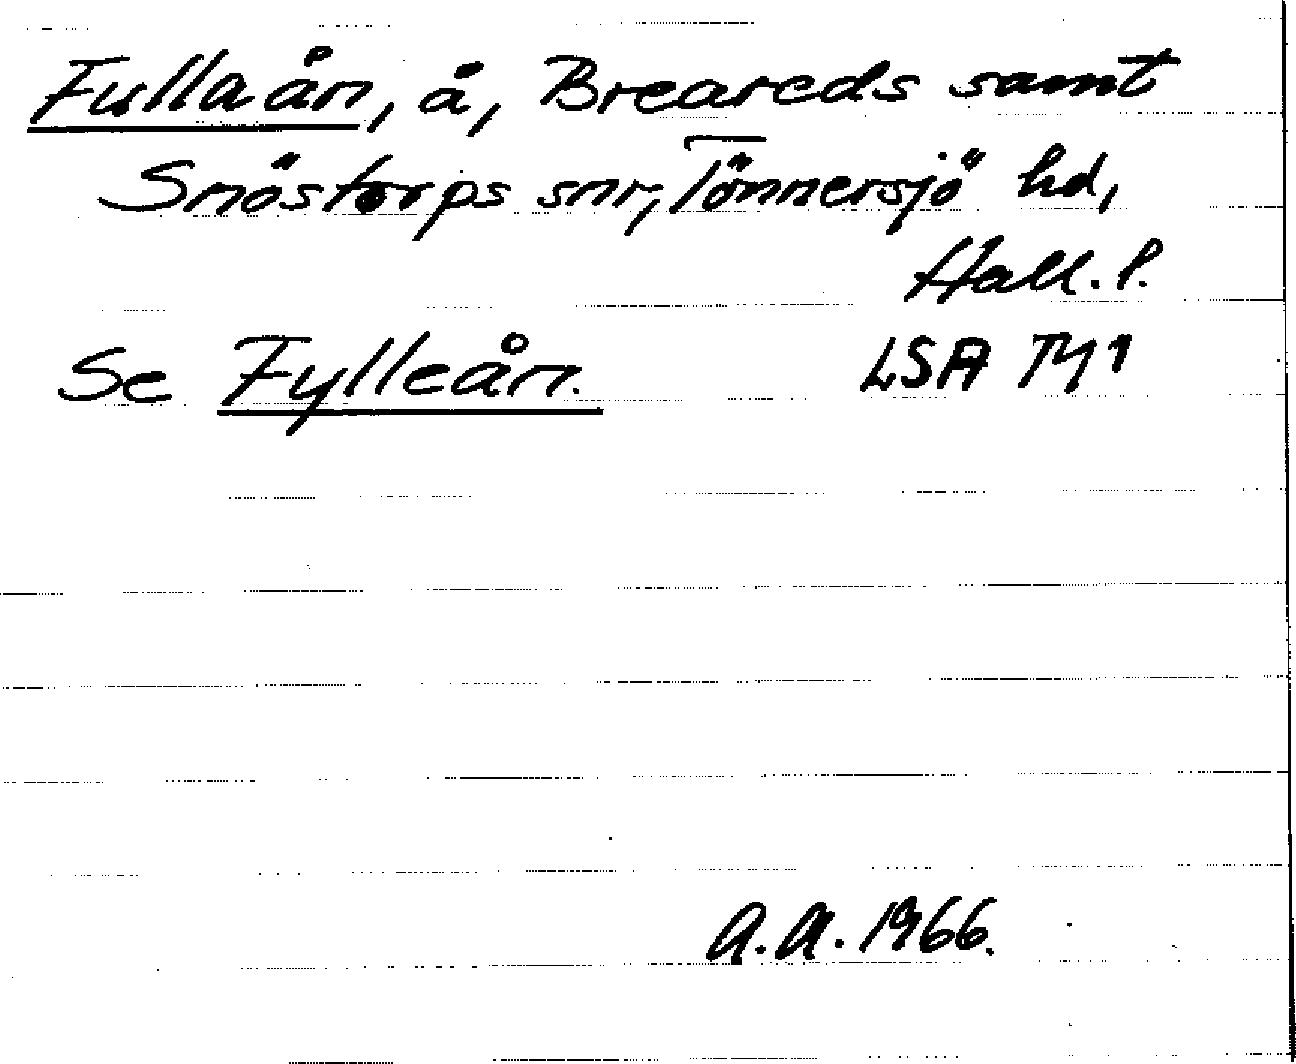 Fullaån, å, Breareds samt
Snöstorps snr, Tönnersjö hd,
Hall. l.
Se Fylleån. LSA TY1
A.A. 1966.